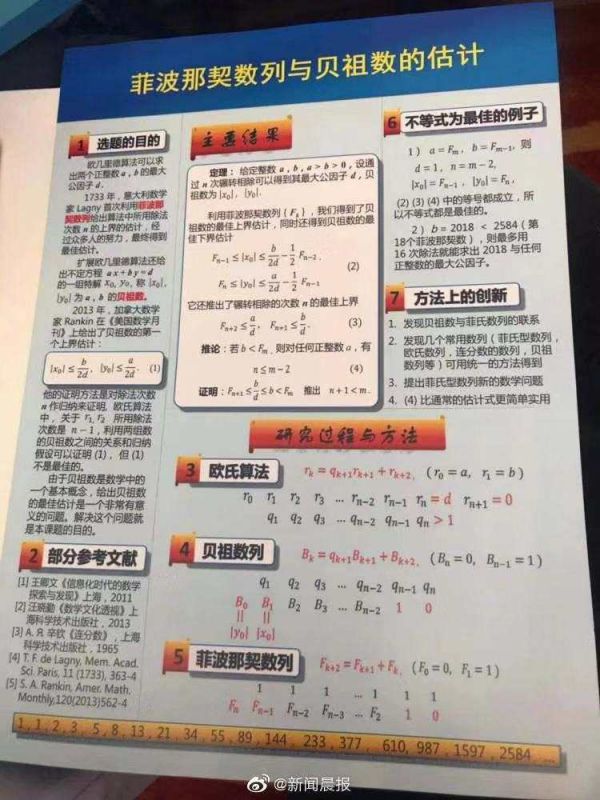 菲波那契数列与贝祖数的估计
1 选题的目的
欧几里德算法可以求
出两个正整数 a, b 的最大
公因子 d.
1733 年，意大利数学
家 Lagny 首次利用菲波那
契数列给出算法中所用除法
次数 n 的上界的估计，经
过众人的努力，最终得到
最佳估计。
扩展欧几里德算法还给
出不定方程 ax + by = d
的一组特解 x₀, y₀, 称 |x₀|,
|y₀| 为 a, b 的贝祖数。
2013 年，加拿大数学
家 Rankin 在《美国数学月
刊》上给出了贝祖数的第一
个上界估计：
|x₀| ≤ b/2d, |y₀| ≤ a/2d. (1)
他的证明方法是对除法次数
n 作归纳来证明, 欧氏算法
中，关于 r₁, r₂ 所用除法
次数是 n − 1，利用两组数
的贝祖数之间的关系和归纳
假设可以证明 (1)，但 (1)
不是最佳的。
由于贝祖数是数学中的
一个基本概念，给出贝祖数
的最佳估计是一个非常有意
义的问题。解决这个问题就
是本课题的目的。
2 部分参考文献
[1] 王卿文《信息化时代的数学
探索与发现》上海，2011
[2] 汪晓勤《数学文化透视》上
海科学技术出版社，2013
[3] А. Я. 辛钦《连分数》，上海
科学技术出版社，1965
[4] T. F. de Lagny, Mem. Acad.
Sci. Paris, 11 (1733), 363-4
[5] S. A. Rankin, Amer. Math.
Monthly,120(2013)562-4
主要结果
定理：给定整数 a, b, a > b > 0, 设通
过 n 次辗转相除可以得到其最大公因子 d，贝
祖数为 |x₀|, |y₀|.
利用菲波那契数列 {Fₖ}，我们得到了贝
祖数的最佳上界估计，同时还得到贝祖数的最
佳下界估计
Fₙ₋₁ ≤ |x₀| ≤ b/2d − 1/2 Fₙ₋₂,
(2)
Fₙ ≤ |y₀| ≤ a/2d − 1/2 Fₙ₋₁.
它还推出了辗转相除的次数 n 的最佳上界
Fₙ₊₂ ≤ a/d, Fₙ₊₁ ≤ b/d. (3)
推论：若 b < Fₘ, 则对任何正整数 a，有
n ≤ m − 2 (4)
证明：Fₙ₊₁ ≤ b/d ≤ b < Fₘ 推出 n + 1 < m.
6 不等式为最佳的例子
1) a = Fₘ, b = Fₘ₋₁, 则
d = 1, n = m − 2,
|x₀| = Fₙ₋₁, |y₀| = Fₙ,
(2) (3) (4) 中的等号都成立，所
以不等式都是最佳的。
2) b = 2018 < 2584 (第
18个菲波那契数)，则最多用
16 次除法就能求出 2018 与任何
正整数的最大公因子。
7 方法上的创新
1. 发现贝祖数与菲氏数列的联系
2. 发现几个常用数列 (菲氏型数列，
欧氏数列，连分数的数列，贝祖
数列等) 可用统一的方法得到
3. 提出菲氏型数列新的数学问题
4. (4) 比通常的估计式更简单实用
研究过程与方法
3 欧氏算法 rₖ = qₖ₊₁rₖ₊₁ + rₖ₊₂, (r₀ = a, r₁ = b)
r₀ r₁ r₂ r₃ … rₙ₋₂ rₙ₋₁ rₙ = d rₙ₊₁ = 0
q₁ q₂ q₃ … qₙ₋₂ qₙ₋₁ qₙ > 1
4 贝祖数列 Bₖ = qₖ₊₁Bₖ₊₁ + Bₖ₊₂, (Bₙ = 0, Bₙ₋₁ = 1)
q₁ q₂ q₃ … qₙ₋₂ qₙ₋₁ qₙ
B₀ B₁ B₂ B₃ … Bₙ₋₂ 1 0
|| ||
|y₀| |x₀|
5 菲波那契数列 Fₖ₊₂ = Fₖ₊₁ + Fₖ, (F₀ = 0, F₁ = 1)
1 1 1 … 1 1 1
Fₙ Fₙ₋₁ Fₙ₋₂ Fₙ₋₃ … F₂ 1 0
1, 1, 2, 3, 5, 8, 13, 21, 34, 55, 89, 144, 233, 377, 610, 987, 1597, 2584 …
@新闻晨报